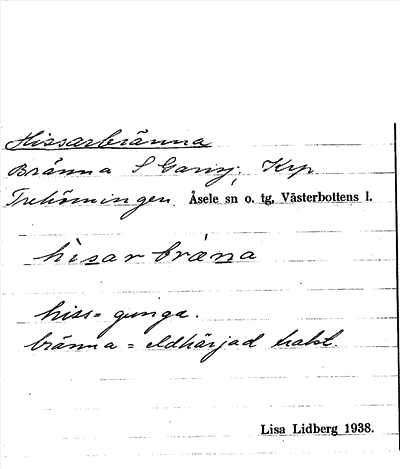 Hissarbränna
Bränna S Garsj, Krp
Trehörningen. Åsele sn o. tg, Västerbottens l.
hìsarbræ̀na
hiss = gunga.
bränna = eldhärjad trakt.
Lisa Lidberg 1938.